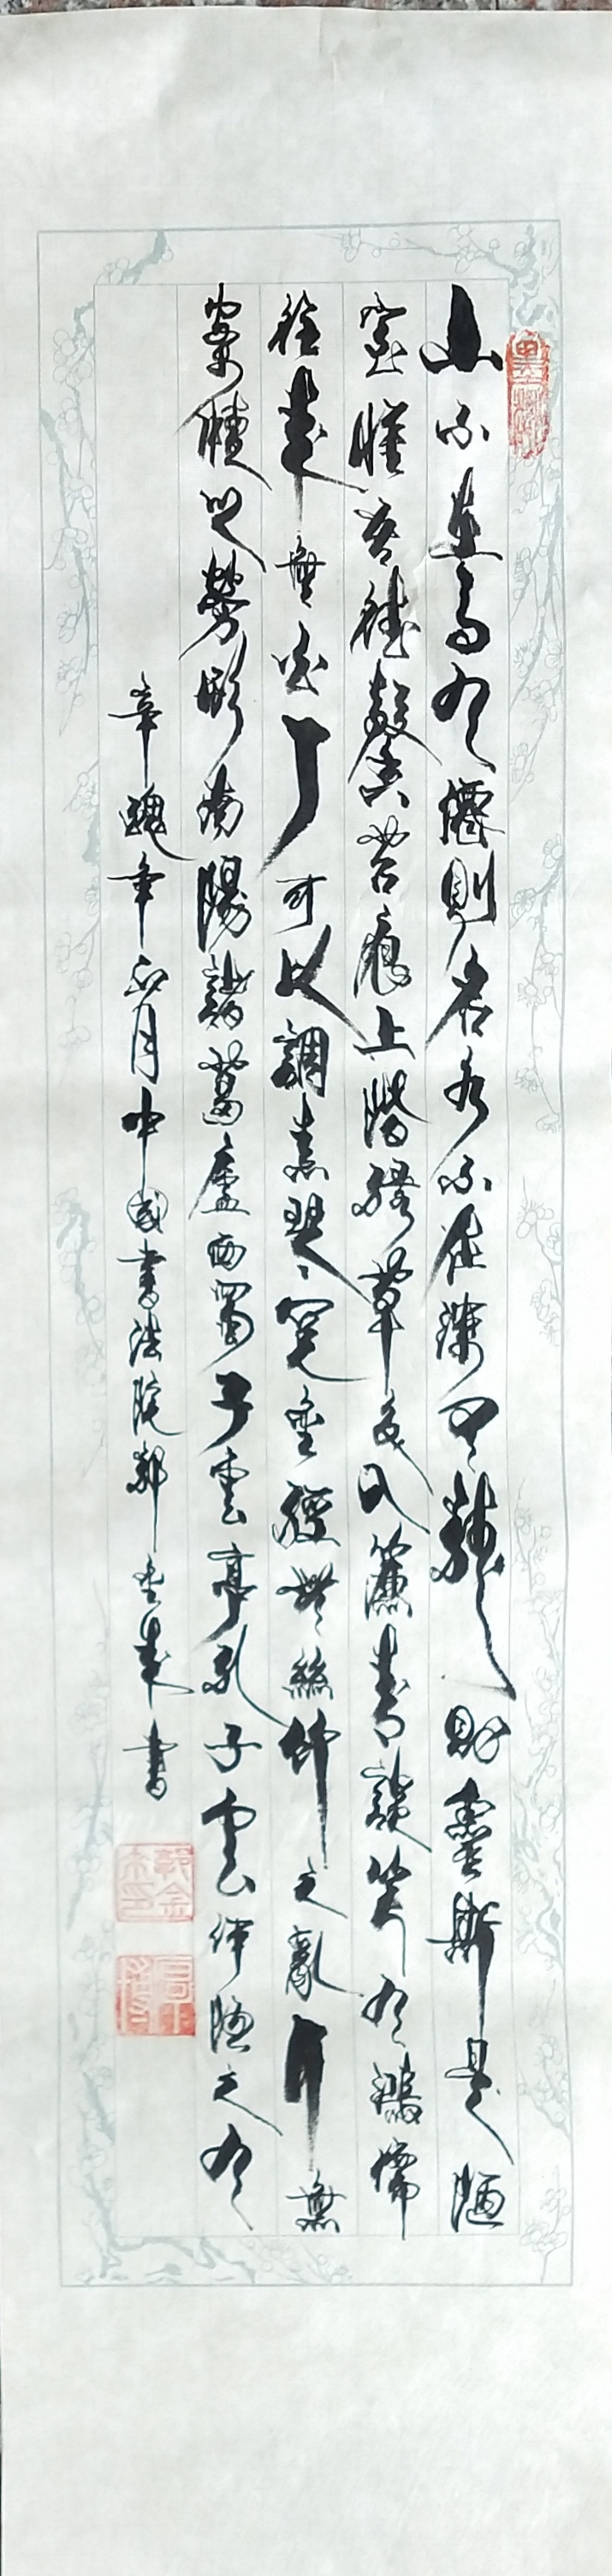 山不在高有僊則名水不在深有龍則靈斯是陋
室惟吾德馨苔痕上階綠草色入簾青談笑有鴻儒
往来無白丁可以調素琴閱金經無絲竹之亂耳無
案牘之勞形南陽諸葛廬西蜀子雲亭孔子云何陋之有
辛醜年正月中國書法院郭金来書